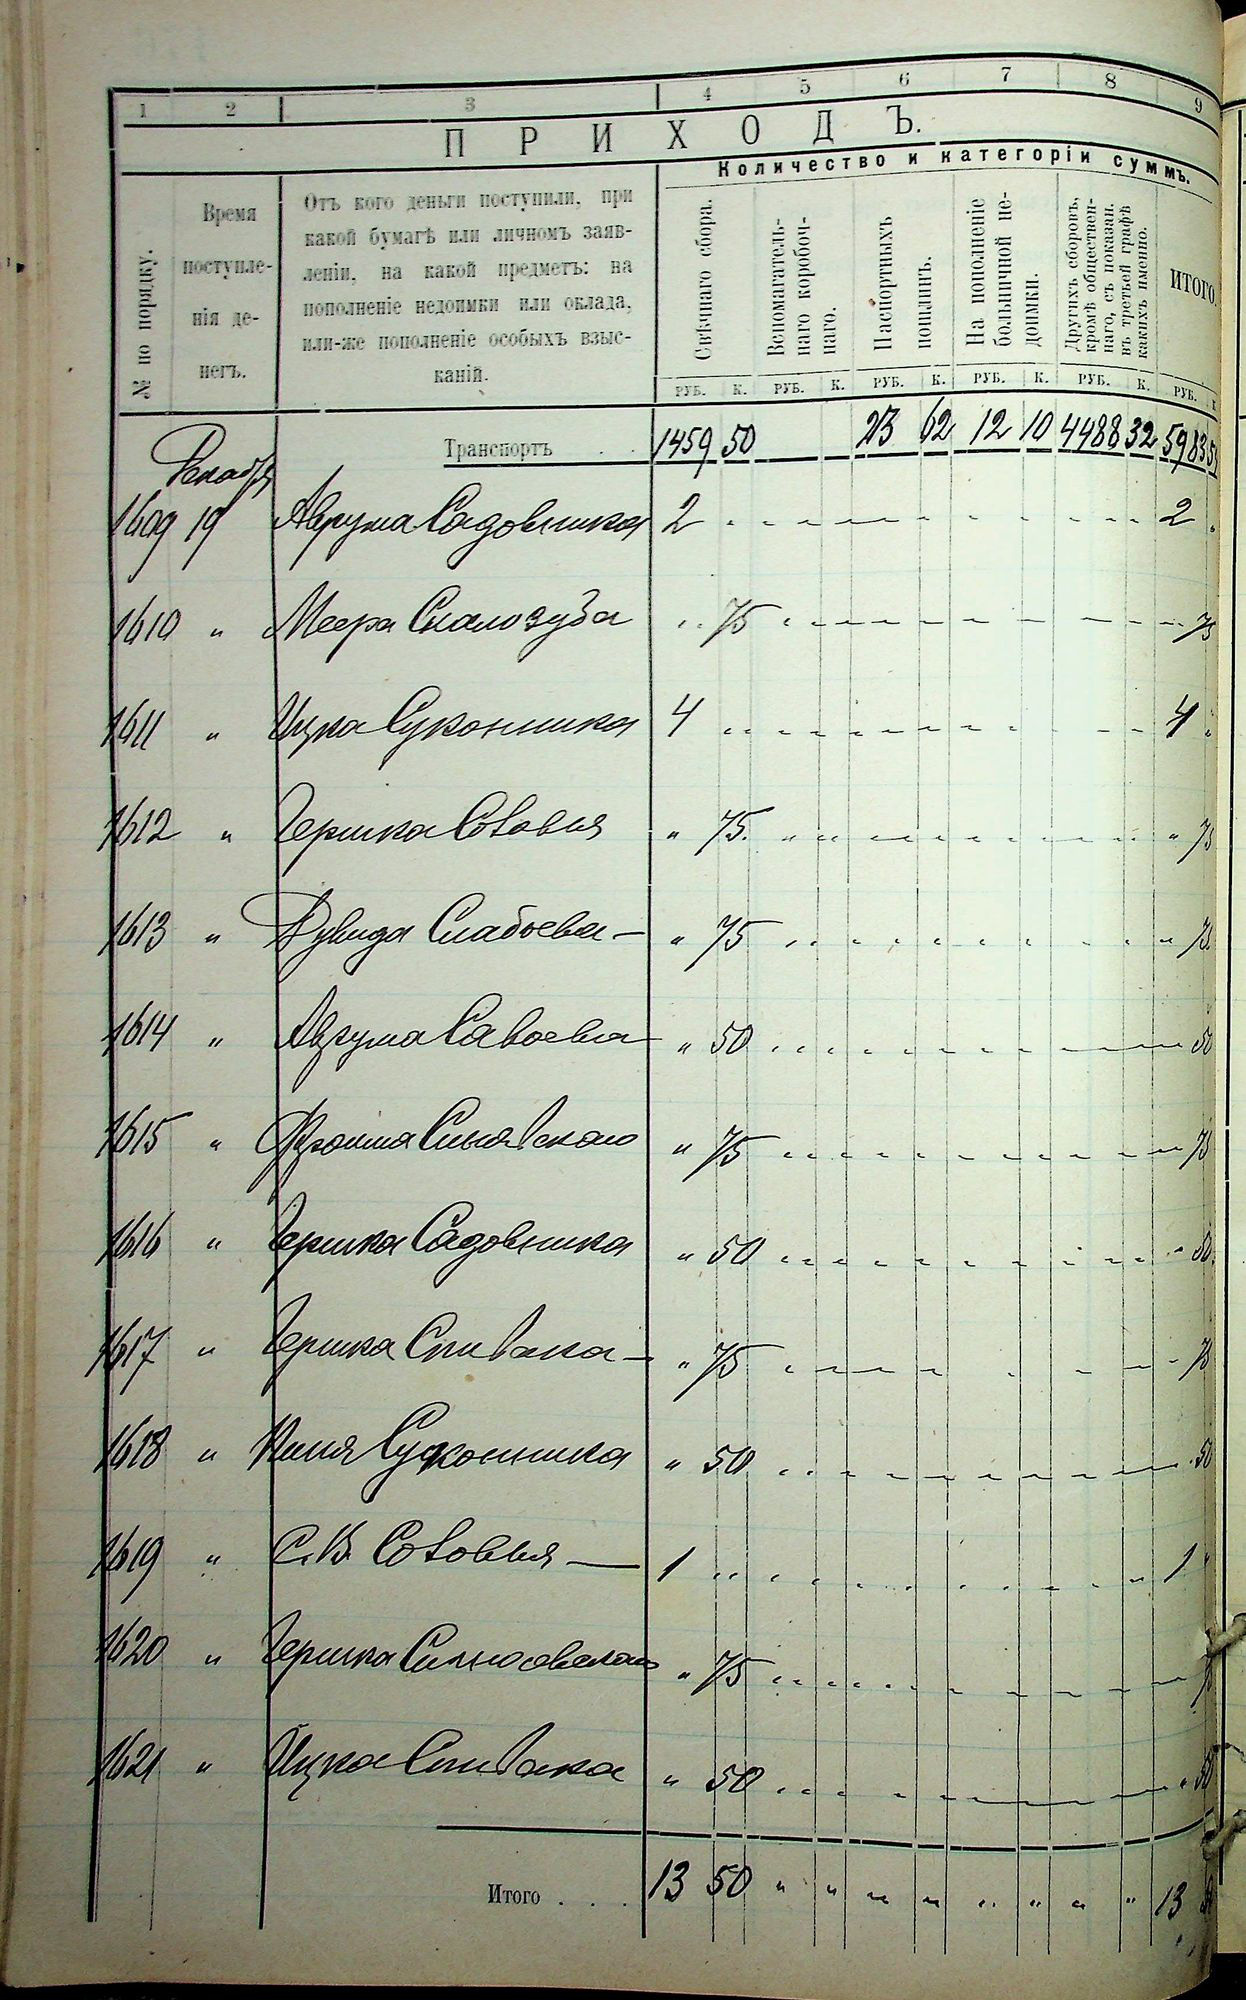 1 2 3 4 5 6 7 8 9
ПРИХОДЪ.
Количество и категоріи суммъ.
№ по порядку.
Время
поступле-
нія де-
негъ.
Отъ кого деньги поступили, при
какой бумагѣ или личномъ заяв-
леніи, на какой предметъ: на
пополненіе недоимки или оклада,
или-же пополненіе особыхъ взыс-
каній.
Свѣчнаго сбора.
Вспомагатель-
наго коробоч-
наго.
Паспортныхъ
пошлинъ.
На пополненіе
больничной не-
доимки.
Другихъ сборовъ,
кромѣ обществен-
наго, съ показан.
въ третьей графѣ
какихъ именно.
ИТОГО.
РУБ. К. РУБ. К. РУБ. К. РУБ. К. РУБ. К. РУБ. К
Транспортъ . . 1459 50 23 62 12 10 4488 32 5983
Декабря
1609 19 Аврума Садовника 2 2
1610 " Меера Скалозуба 75 75
1611 " Ицка Суконника 4 4
1612 " Гершка Соловья " 75 " 75
1613 " Дувида Слабоева — " 75 " 75
1614 " Аврума Савоева " 50 50
1615 " Фроима Синявскаго " 75 " 75
1616 " Гершка Садовника " 50 " 50
1617 " Гершка Спивака — " 75 75
1618 " Суконника " 50 50
1619 " С. В. Соловья — 1 1
1620 " Гершка " 75
1621 " Ицка Спивака " 50 " 50
Итого . . . 13 50 " " " " " " " " 13